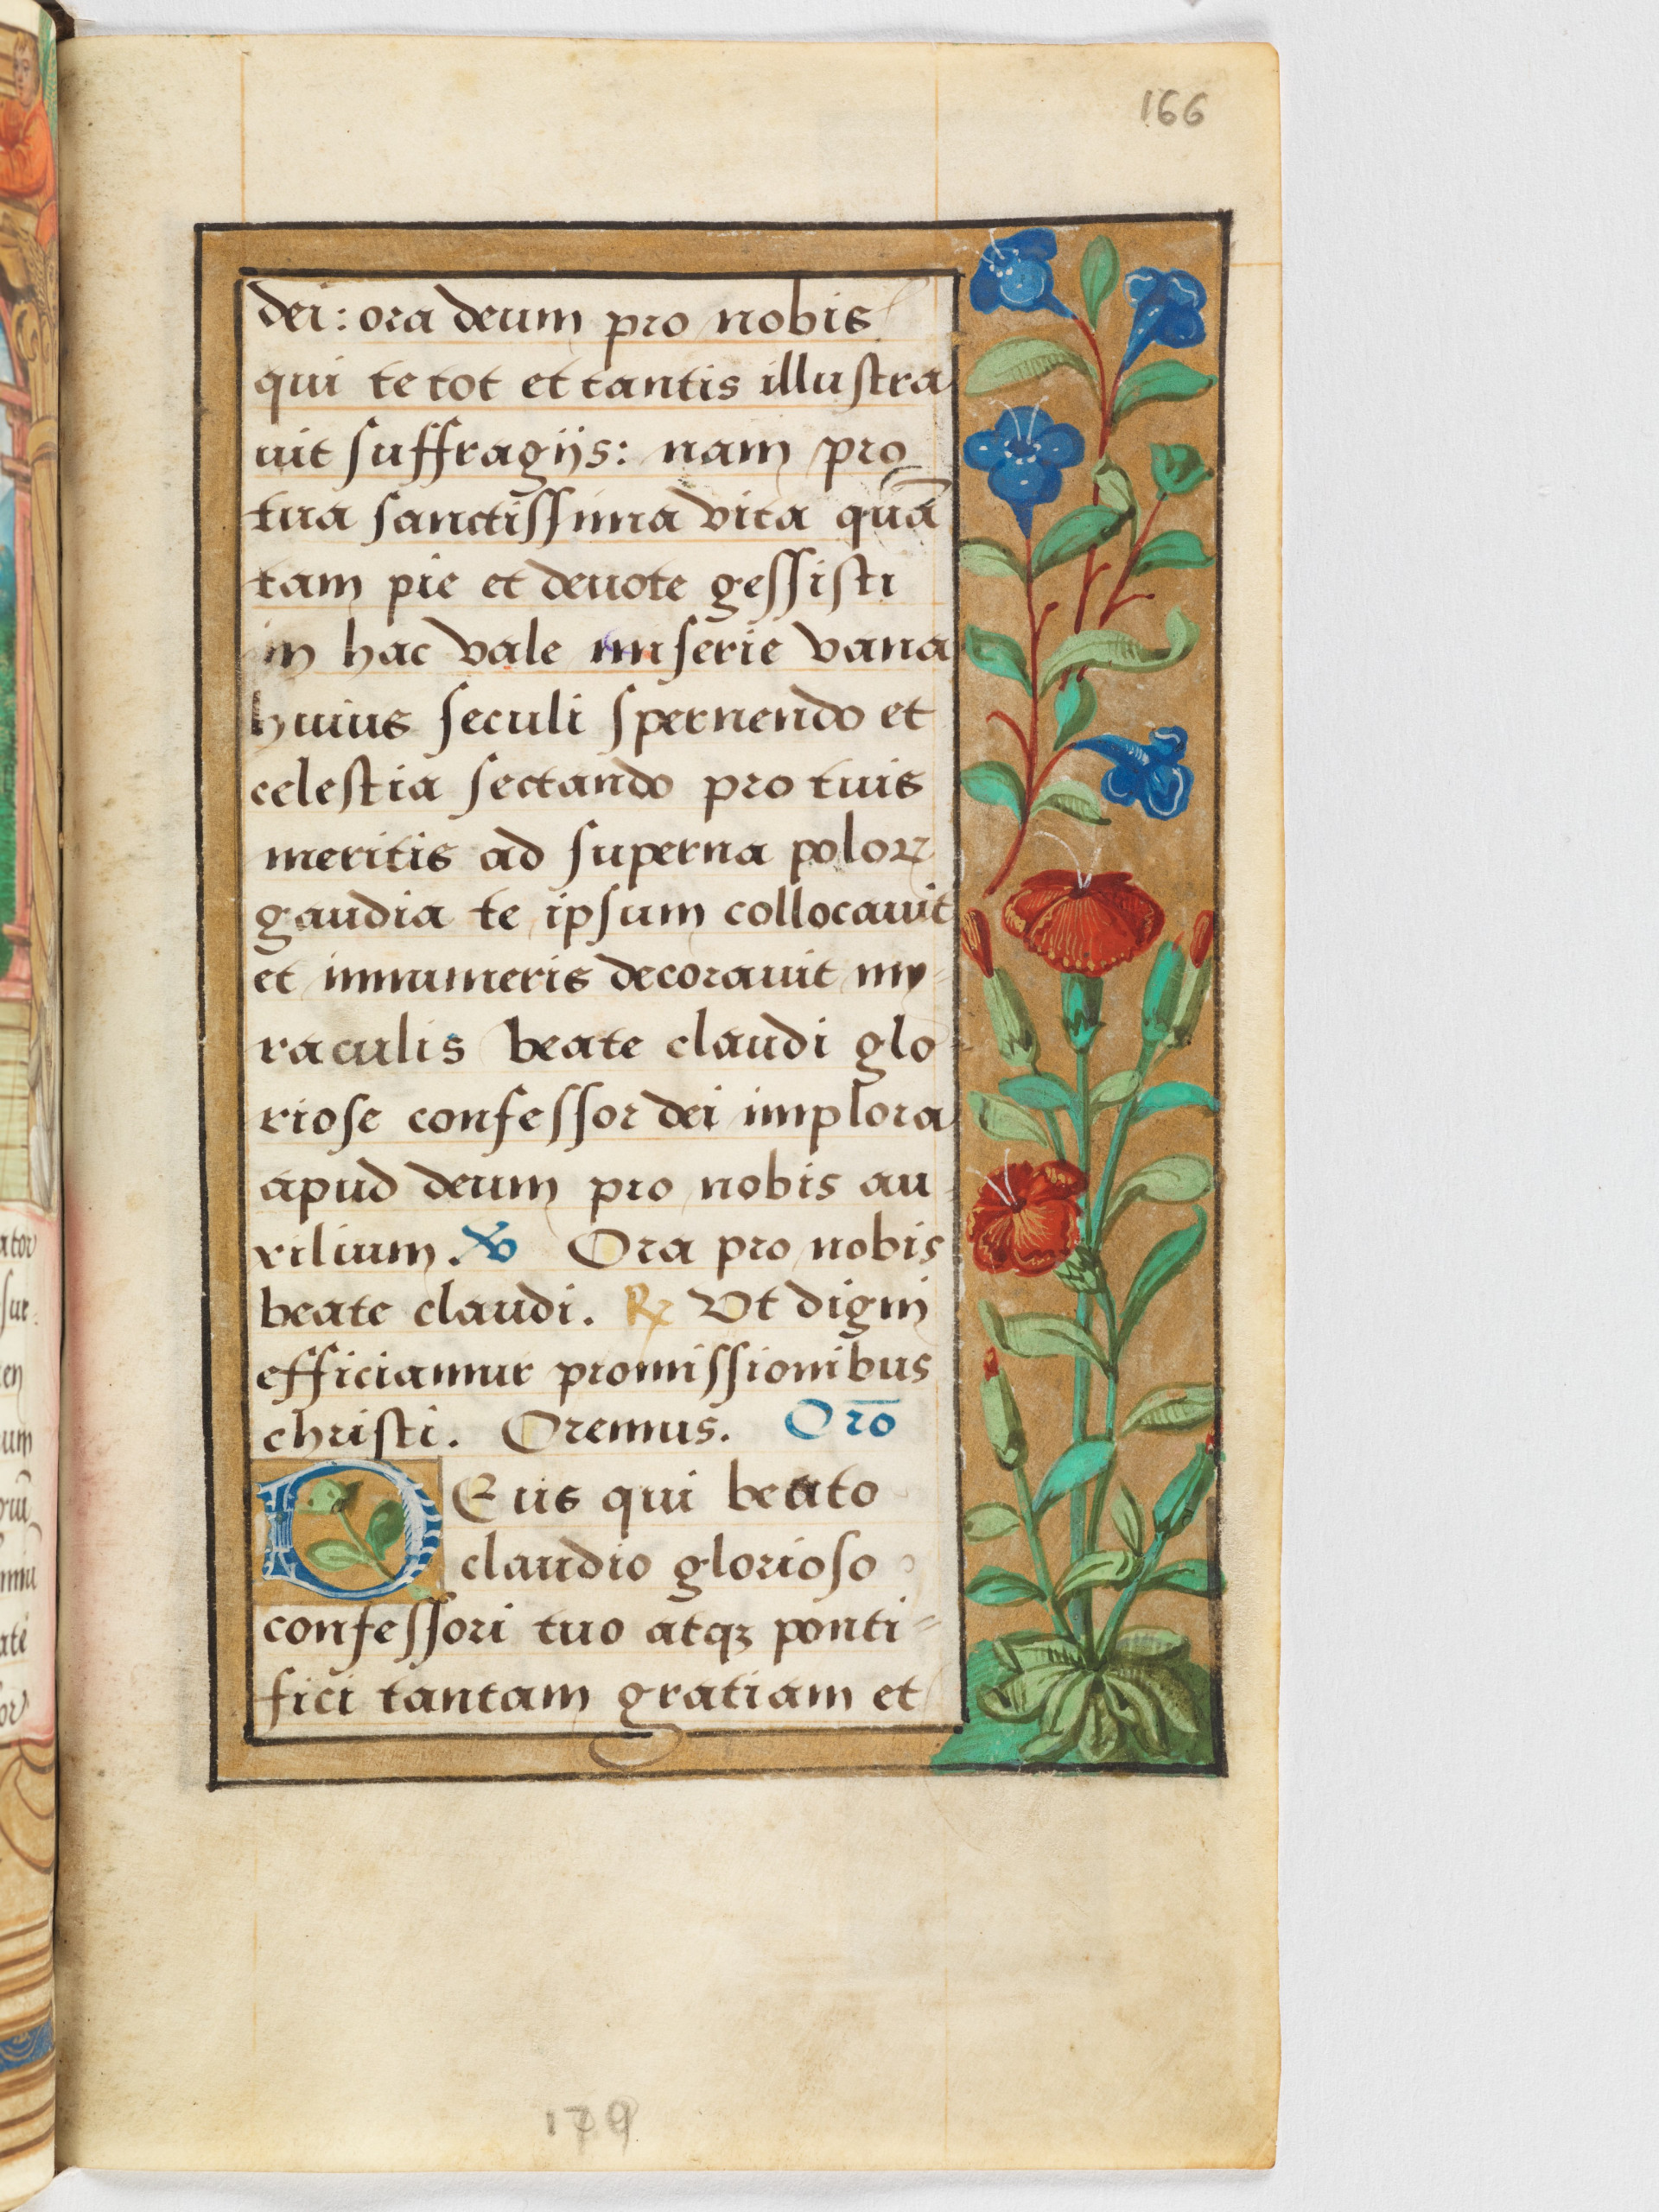 166
dei: ora deum pro nobis
qui te tot et tantis illustra
uit suffragijs: nam pro
tua sanctissima vita quā
tam pie et deuote gessisti
in hac vale miserie vana
huius seculi spernendo et
celestia sectando pro tuis
meritis ad superna poloꝝ
gaudia te ipsum collocauit
et innumeris decorauit my-
raculis beate claudi glo-
riose confessor dei implora
apud deum pro nobis au-
xilium. ℣ Ora pro nobis
beate claudi. ℟ Vt digni
efficiamur promissionibus
christi. Oremus. Orō
DEus qui beato
claudio glorioso
confessori tuo atqꝫ ponti-
fici tantam gratiam et
179